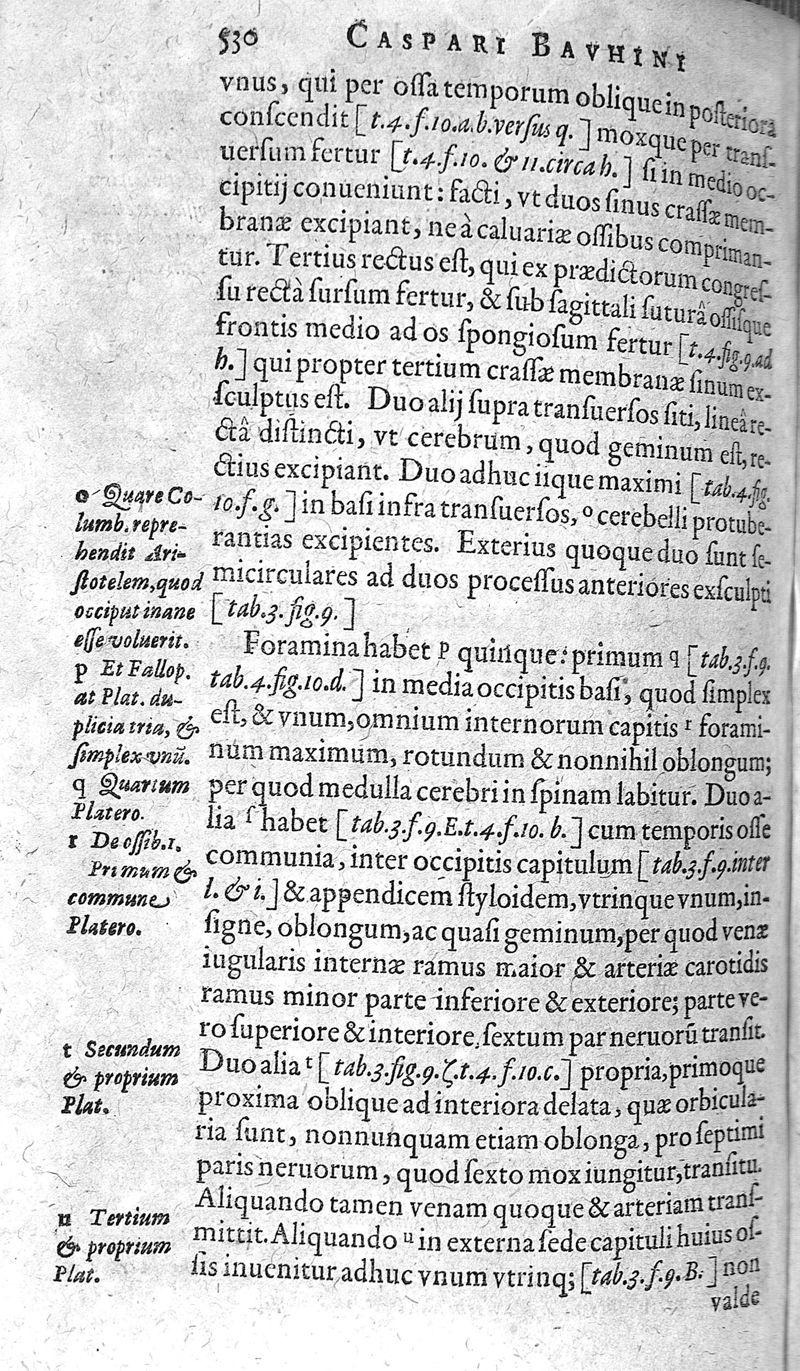 530 CASPARI BAVHINI
vnus, qui per oſſa temporum oblique in poſteriora
conſcendit [t.4.f.10.a.b.verſus q.] moxque per tranſ-
uerſum fertur [t.4.f.10. & 11.circa h.] ſi in medio oc-
cipitij conueniunt: facti, vt duos ſinus craſſæ mem-
branæ excipiant, ne à caluariæ oſſibus compriman-
tur. Tertius rectus eſt, qui ex prædictorum congreſ-
ſu rectà ſurſum fertur, & ſub ſagittali ſuturâ oſſiſque
frontis medio ad os ſpongioſum fertur [t.4.fig.9.ad
h.] qui propter tertium craſſæ membranæ ſinum ex-
ſculptus eſt. Duo alij ſupra tranſuerſos ſiti, lineâ re-
ctâ diſtincti, vt cerebrum, quod geminum eſt, re-
ctius excipiant. Duo adhuc iique maximi [tab.4.fig.
10.f.g.] in baſi infra tranſuerſos, o cerebelli protube-
rantias excipientes. Exterius quoque duo ſunt ſe-
micirculares ad duos proceſſus anteriores exſculpti
[tab.3.fig.9.]
Foramina habet p quinque: primum q [tab.3.f.9.
tab.4.fig.10.d.] in media occipitis baſi, quod ſimplex
eſt, & vnum, omnium internorum capitis r forami-
num maximum, rotundum & nonnihil oblongum;
per quod medulla cerebri in ſpinam labitur. Duo a-
lia ſ habet [tab.3.f.9.E.t.4.f.10. b.] cum temporis oſſe
communia, inter occipitis capitulum [tab.3.f.9.inter
l. & i.] & appendicem ſtyloidem, vtrinque vnum, in-
ſigne, oblongum, ac quaſi geminum, per quod venæ
iugularis internæ ramus maior & arteriæ carotidis
ramus minor parte inferiore & exteriore; parte ve-
ro ſuperiore & interiore, ſextum par neruorũ tranſit.
Duo alia t [tab.3.fig.9.ζ.t.4.f.10.c.] propria, primoque
proxima oblique ad interiora delata, quæ orbicula-
ria ſunt, nonnunquam etiam oblonga, pro ſeptimi
paris neruorum, quod ſexto mox iungitur, tranſitu.
Aliquando tamen venam quoque & arteriam tranſ-
mittit. Aliquando u in externa ſede capituli huius oſ-
ſis inuenitur adhuc vnum vtrinq; [tab.3.f.9.B.] non
valde
o Quare Co-
lumb. repre-
hendit Ari-
ſtotelem, quod
occiput inane
eſſe voluerit.
p Et Fallop.
at Plat. du-
plicia tria, &
ſimplex vnũ.
q Quartum
Platero.
r De oſſib.1.
Primum &
commune
Platero.
t Secundum
& proprium
Plat.
u Tertium
& proprium
Plat.